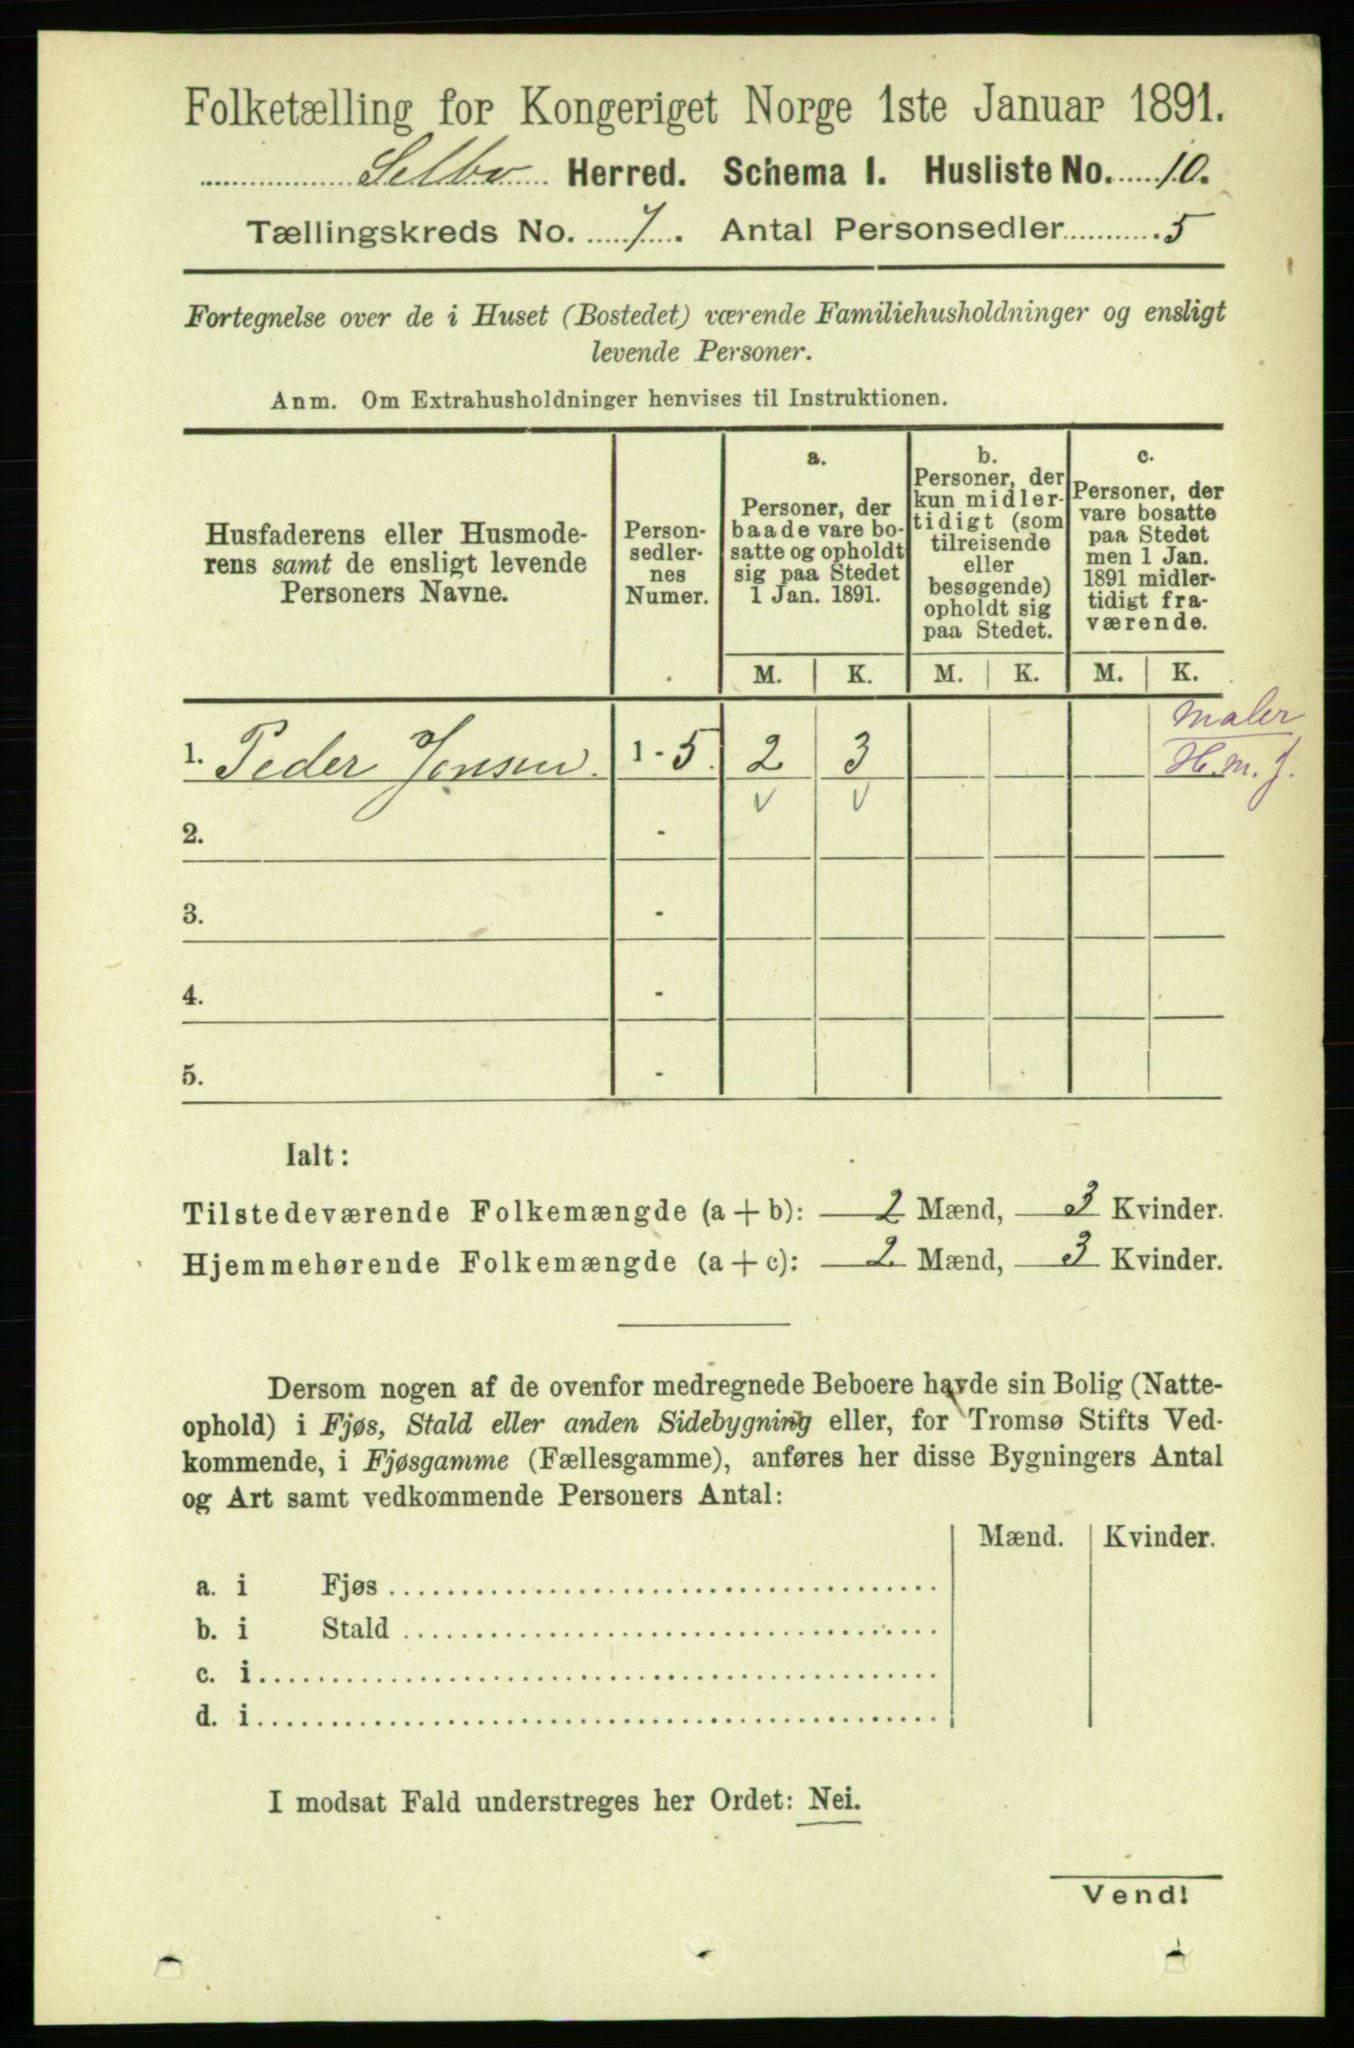 Folketælling for Kongeriget Norge 1ste Januar 1891.
Selbu Herred. Schema I. Husliste No. 10.
Tællingskreds No. 7. Antal Personsedler 5
Fortegnelse over de i Huset (Bostedet) værende Familiehusholdninger og ensligt
levende Personer.
Anm. Om Extrahusholdninger henvises til Instruktionen.
Husfaderens eller Husmode-
rens samt de ensligt levende
Personers Navne.
Person-
sedler-
nes
Numer.
a.
Personer, der
baade vare bo-
satte og opholdt
sig paa Stedet
1 Jan. 1891.
b.
Personer, der
kun midler-
tidigt (som
tilreisende
eller
besøgende)
opholdt sig
paa Stedet.
c.
Personer, der
vare bosatte
paa Stedet
men 1 Jan.
1891 midler-
tidigt fra-
værende.
M. K. M. K. M. K.
Maler
H.m.J.
1. Peder Jensen. 1 - 5. 2 3
v v
2. -
3. -
4. -
5. -
Ialt:
Tilstedeværende Folkemængde (a + b): 2 Mænd, 3 Kvinder.
Hjemmehørende Folkemængde (a + c): 2 Mænd, 3 Kvinder.
Dersom nogen af de ovenfor medregnede Beboere havde sin Bolig (Natte-
ophold) i Fjøs, Stald eller anden Sidebygning eller, for Tromsø Stifts Ved-
kommende, i Fjøsgamme (Fællesgamme), anføres her disse Bygningers Antal
og Art samt vedkommende Personers Antal:
Mænd. Kvinder.
a. i Fjøs
b. i Stald
c. i
d. i
I modsat Fald understreges her Ordet: Nei.
Vend!